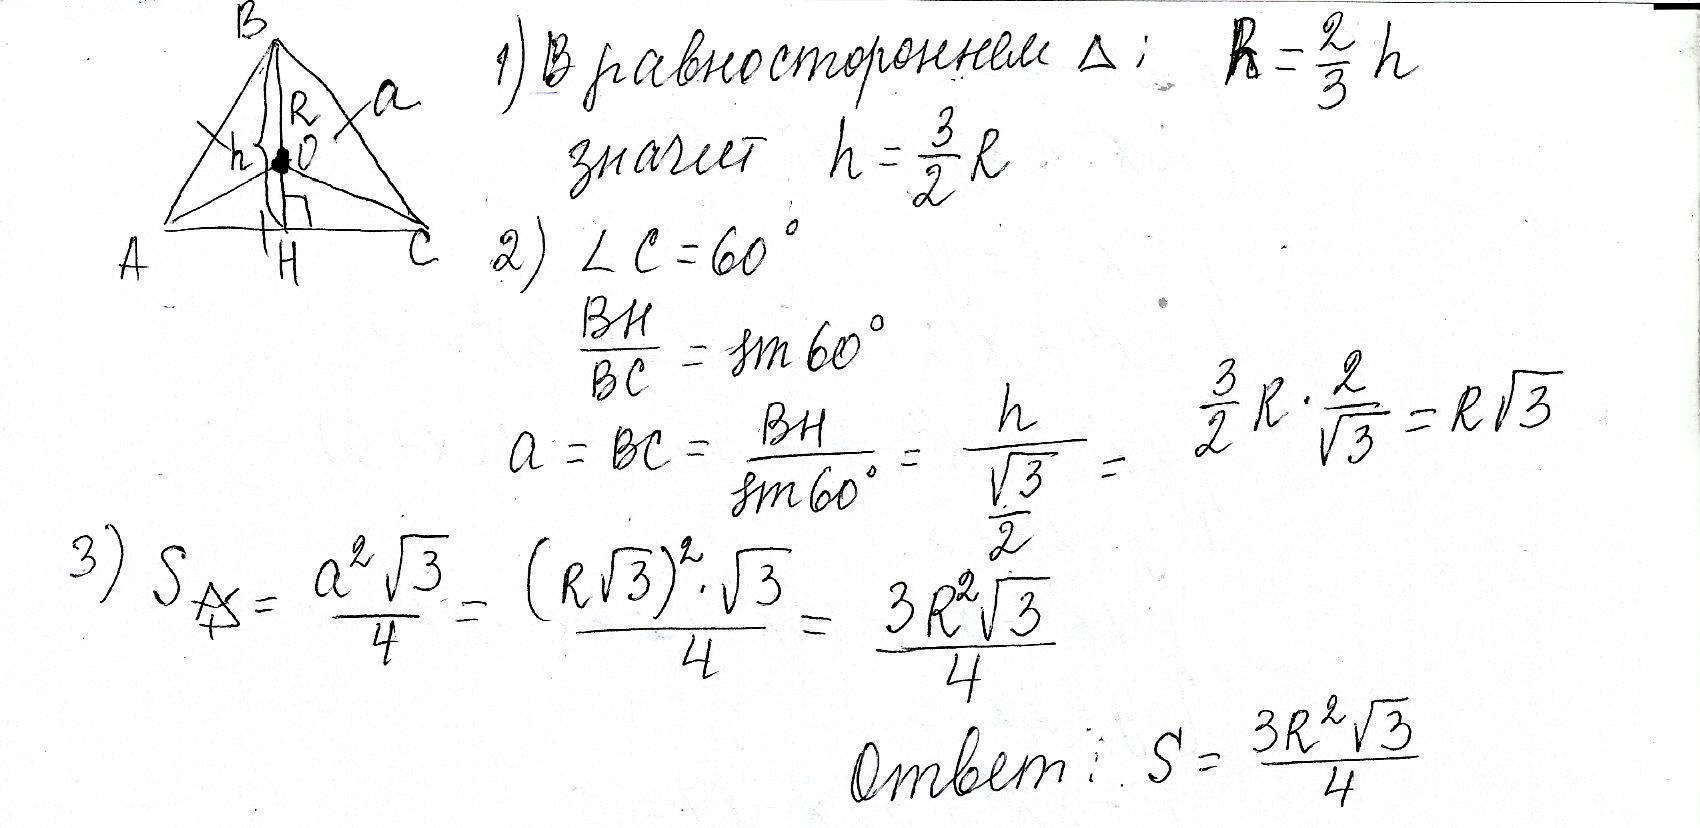 B
R
a
h
O
A
H
C
1) В равностороннем Δ: R = 2/3 h
значит h = 3/2 R
2) ∠C = 60°
BH/BC = sin 60°
a = BC = BH/sin 60° = h/(√3/2) = 3/2 R · 2/√3 = R√3
3) S△ = a²√3/4 = (R√3)²·√3/4 = 3R²√3/4
Ответ: S = 3R²√3/4